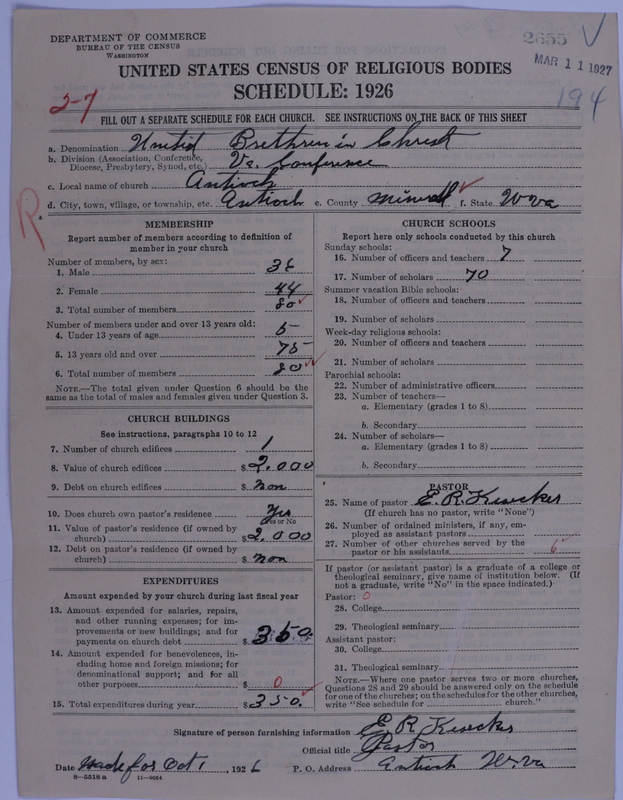 DEPARTMENT OF COMMERCE
BUREAU OF THE CENSUS
WASHINGTON
2655
MAR 11 1927
194
UNITED STATES CENSUS OF RELIGIOUS BODIES
SCHEDULE: 1926
2-7
FILL OUT A SEPARATE SCHEDULE FOR EACH CHURCH. SEE INSTRUCTIONS ON THE BACK OF THIS SHEET
a. Denomination United Brethren in Christ
b. Division (Association, Conference, Diocese, Presbytery, Synod, etc.) Va. Conference
c. Local name of church Antioch
d. City, town, village, or township, etc. Antioch e. County Mineral f. State W Va
R
MEMBERSHIP
Report number of members according to definition of
member in your church
Number of members, by sex:
1. Male 36
2. Female 44
3. Total number of members 80
Number of members under and over 13 years old:
4. Under 13 years of age 5
5. 13 years old and over 75
6. Total number of members 80
NOTE.—The total given under Question 6 should be the
same as the total of males and females given under Question 3.
CHURCH BUILDINGS
See instructions, paragraphs 10 to 12
7. Number of church edifices 1
8. Value of church edifices $2,000
9. Debt on church edifices $ non
10. Does church own pastor's residence Yes
Yes or No
11. Value of pastor's residence (if owned by
church) $2,000
12. Debt on pastor's residence (if owned by
church) $ non
EXPENDITURES
Amount expended by your church during last fiscal year
13. Amount expended for salaries, repairs,
and other running expenses; for im-
provements or new buildings; and for
payments on church debt $ 350
14. Amount expended for benevolences, in-
cluding home and foreign missions; for
denominational support; and for all
other purposes $ 0
15. Total expenditures during year $350.
CHURCH SCHOOLS
Report here only schools conducted by this church
Sunday schools:
16. Number of officers and teachers 7
17. Number of scholars 70
Summer vacation Bible schools:
18. Number of officers and teachers
19. Number of scholars
Week-day religious schools:
20. Number of officers and teachers
21. Number of scholars
Parochial schools:
22. Number of administrative officers
23. Number of teachers—
a. Elementary (grades 1 to 8)
b. Secondary
24. Number of scholars—
a. Elementary (grades 1 to 8)
b. Secondary
PASTOR
25. Name of pastor E. R. Kisecker
(If church has no pastor, write "None")
26. Number of ordained ministers, if any, em-
ployed as assistant pastors
27. Number of other churches served by the
pastor or his assistants 6
If pastor (or assistant pastor) is a graduate of a college or
theological seminary, give name of institution below. (If
not a graduate, write "No" in the space indicated.)
Pastor: 0
28. College
29. Theological seminary
Assistant pastor:
30. College
31. Theological seminary
NOTE.—Where one pastor serves two or more churches,
Questions 28 and 29 should be answered only on the schedule
for one of the churches; on the schedules for the other churches,
write "See schedule for church."
Signature of person furnishing information E. R. Kisecker
Official title Pastor
Date Made for Oct 1, 1926 P. O. Address Antioch W. Va
8—5518 a 11—9024